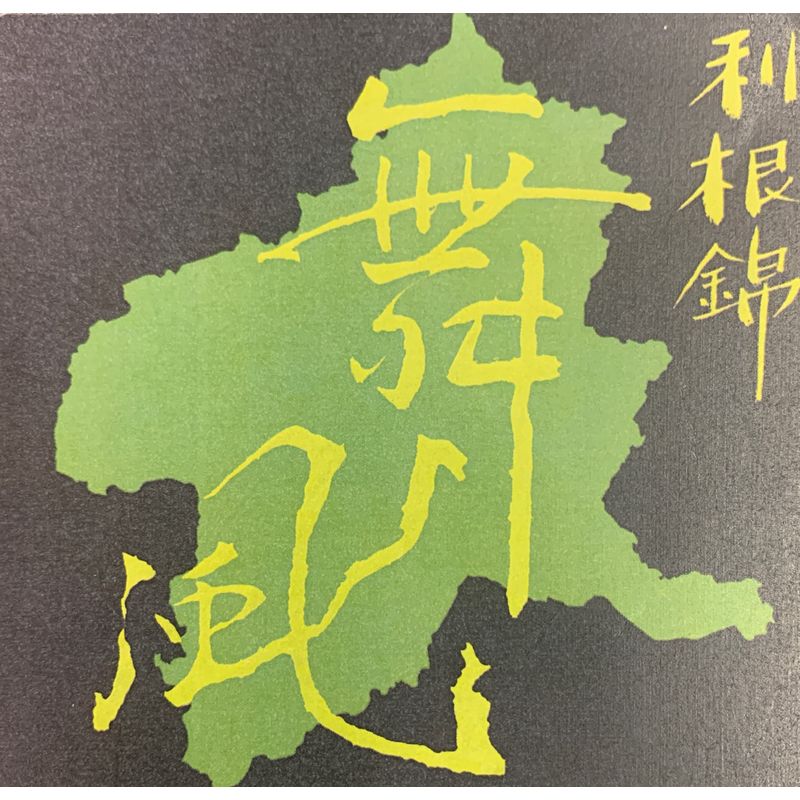 利根錦
舞風